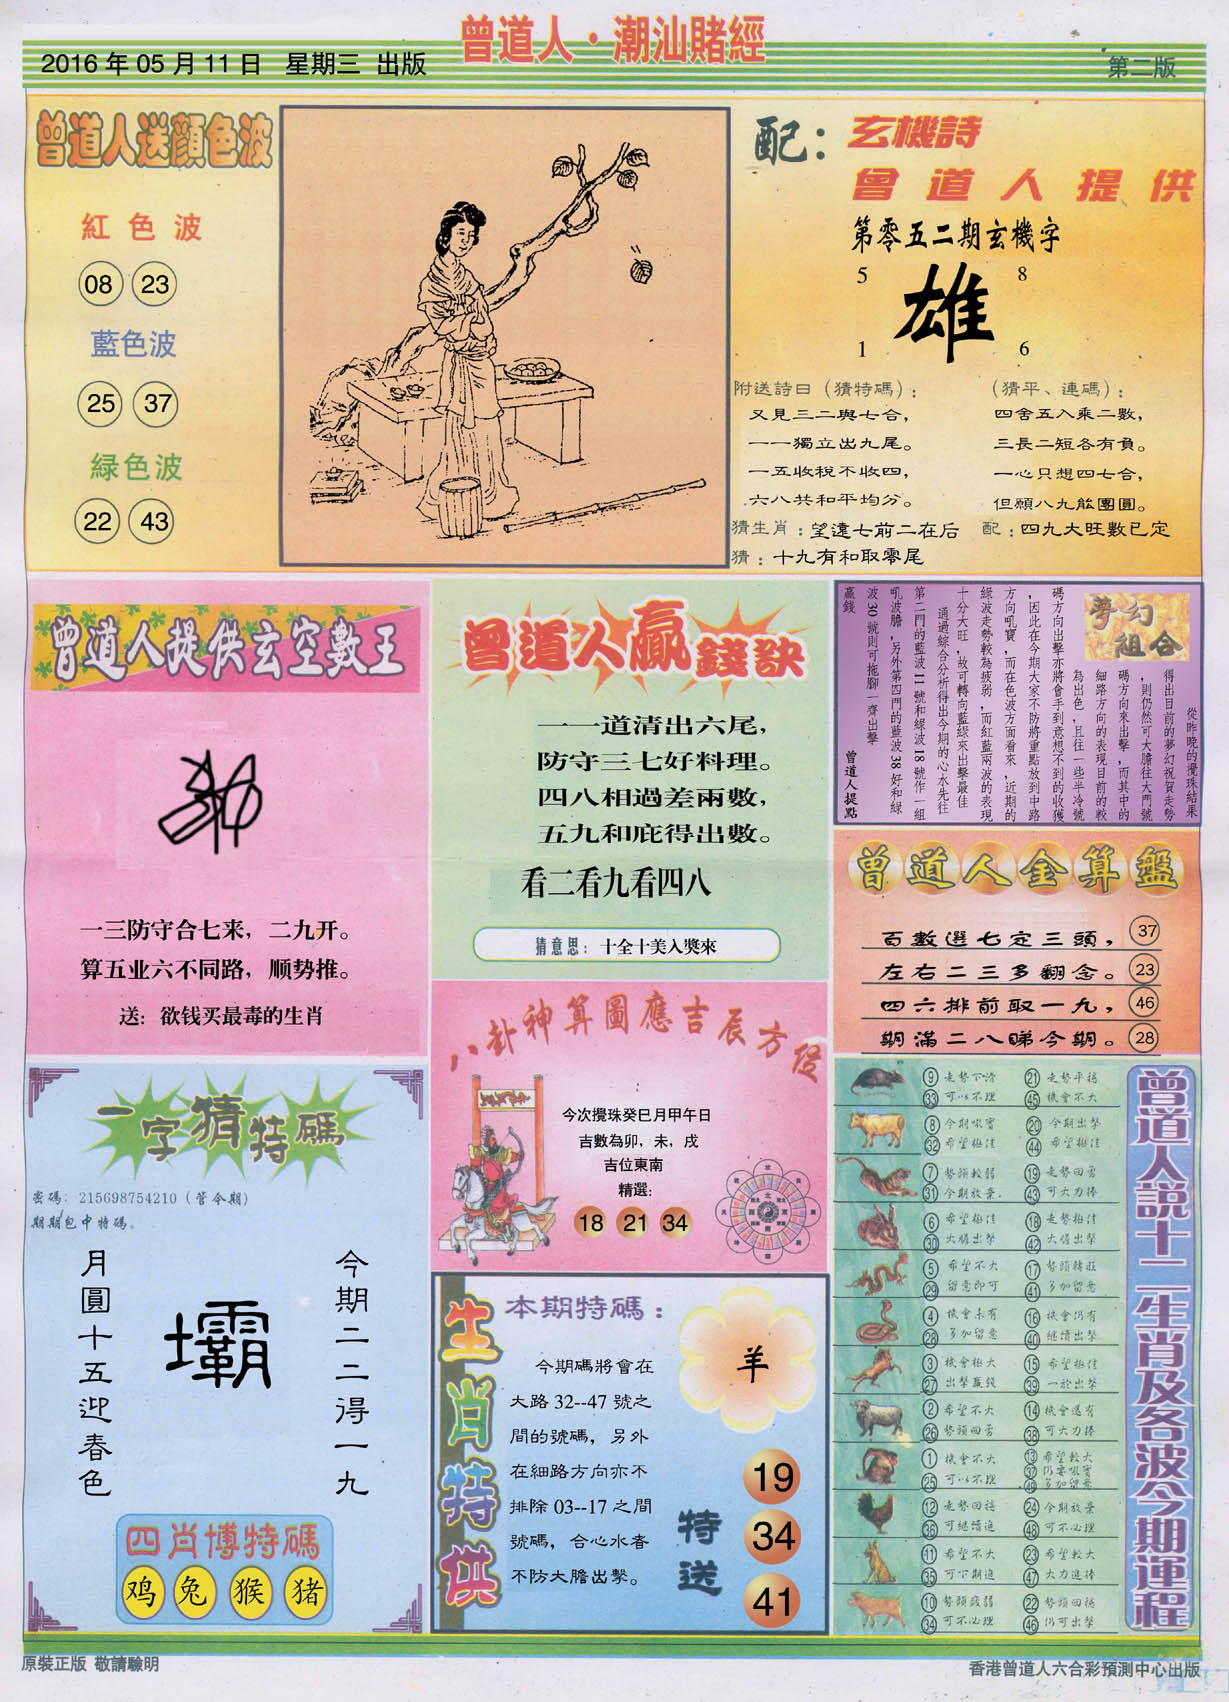 曾道人·潮汕賭經
2016 年 05 月 11 日 星期三 出版
第二版
曾道人送顏色波
紅色波
08 23
藍色波
25 37
緑色波
22 43
配：玄機詩
曾道人提供
第零五二期玄機字
5 8
雄
1 6
附送詩日（猜特碼）：
又見三二與七合，
一一獨立出九尾。
一五收稅不收四，
六八共和平均分。
（猜平、連碼）：
四舍五入乘二數，
三長二短各有負。
一心只想四七合，
但願八九能團圓。
猜生肖：望遠七前二在后
配：四九大旺數已定
猜：十九有和取零尾
曾道人提供玄空數王
一三防守合七来，二九开。
算五业六不同路，顺势推。
送：欲钱买最毒的生肖
曾道人贏錢訣
一一道清出六尾，
防守三七好料理。
四八相過差兩數，
五九和庇得出數。
看二看九看四八
猜意思：十全十美入獎來
夢幻組合
從昨晚的攪珠結果
得出目前的夢幻祝賀走勢
，則仍然可大膽往大門號
碼方向來出擊，而其中的
細路方向的表現目前的較
為出色，且往一些半冷號
碼方向出擊亦將會手到意想不到的收獲
，因此在今期大家不防將重點放到中路
方向吼寶，而在色波方面看來，近期的
綠波走勢較為疲弱，而紅藍兩波的表現
十分大旺，故可轉向藍綠來出擊最佳
通過綜合分析得出今期的心水先往
第二門的藍波 11 號和綠波 18 號作一組
吼波膽，另外第四門的藍波 38 好和綠
波 30 號則可拖腳一齊出擊
贏錢
曾道人提點
曾道人金算盤
百數選七定三頭， 37
左右二三多翻念。 23
四六排前取一九， 46
期滿二八睇今期。 28
一字猜特碼
密碼：215698754210（管今期）
期期包中特碼。
今期二二得一九
壩
月圓十五迎春色
四肖博特碼
鸡 兔 猴 猪
八卦神算圖應吉辰方位
今次攪珠癸巳月甲午日
吉數為卯，未，戌
吉位東南
精選：
18 21 34
生肖特供
本期特碼：
今期碼將會在
大路 32--47 號之
間的號碼，另外
在細路方向亦不
排除 03--17 之間
號碼，合心水者
不防大膽出擊。
羊
特送
19
34
41
曾道人說十二生肖及各波今期運程
9 走勢下滑 21 走勢平穩
33 可以不理 45 機會不大
8 今期吸寶 20 今期出擊
32 希望極佳 44 希望極佳
7 勢頭較弱 19 走勢回勇
31 今期放棄. 43 可大力捧
6 希望極佳 18 走勢極佳
30 大膽出擊 42 大膽出擊
5 希望不大 17 勢頭轉旺
29 留意即可 41 多加留意
4 機會未有 16 機會仍有
28 多加留意 40 繼續出擊
3 機會極大 15 希望極佳
27 出擊贏錢 39 一於出擊
2 希望不大 14 機會還有
26 勢頭回勇 38 可大力捧
1 機會不大 13 希望較大
25 可以不理 37 仍要吸寶
49 多加留意
12 走勢回穩 24 今期放棄
36 可繼續追 48 可不必理
11 希望不大 23 希望較大
35 可下期追 47 大力追捧
10 勢頭疲弱 22 勢頭回穩
34 可不必理 46 仍可出擊
原裝正版 敬請驗明
香港曾道人六合彩預測中心出版